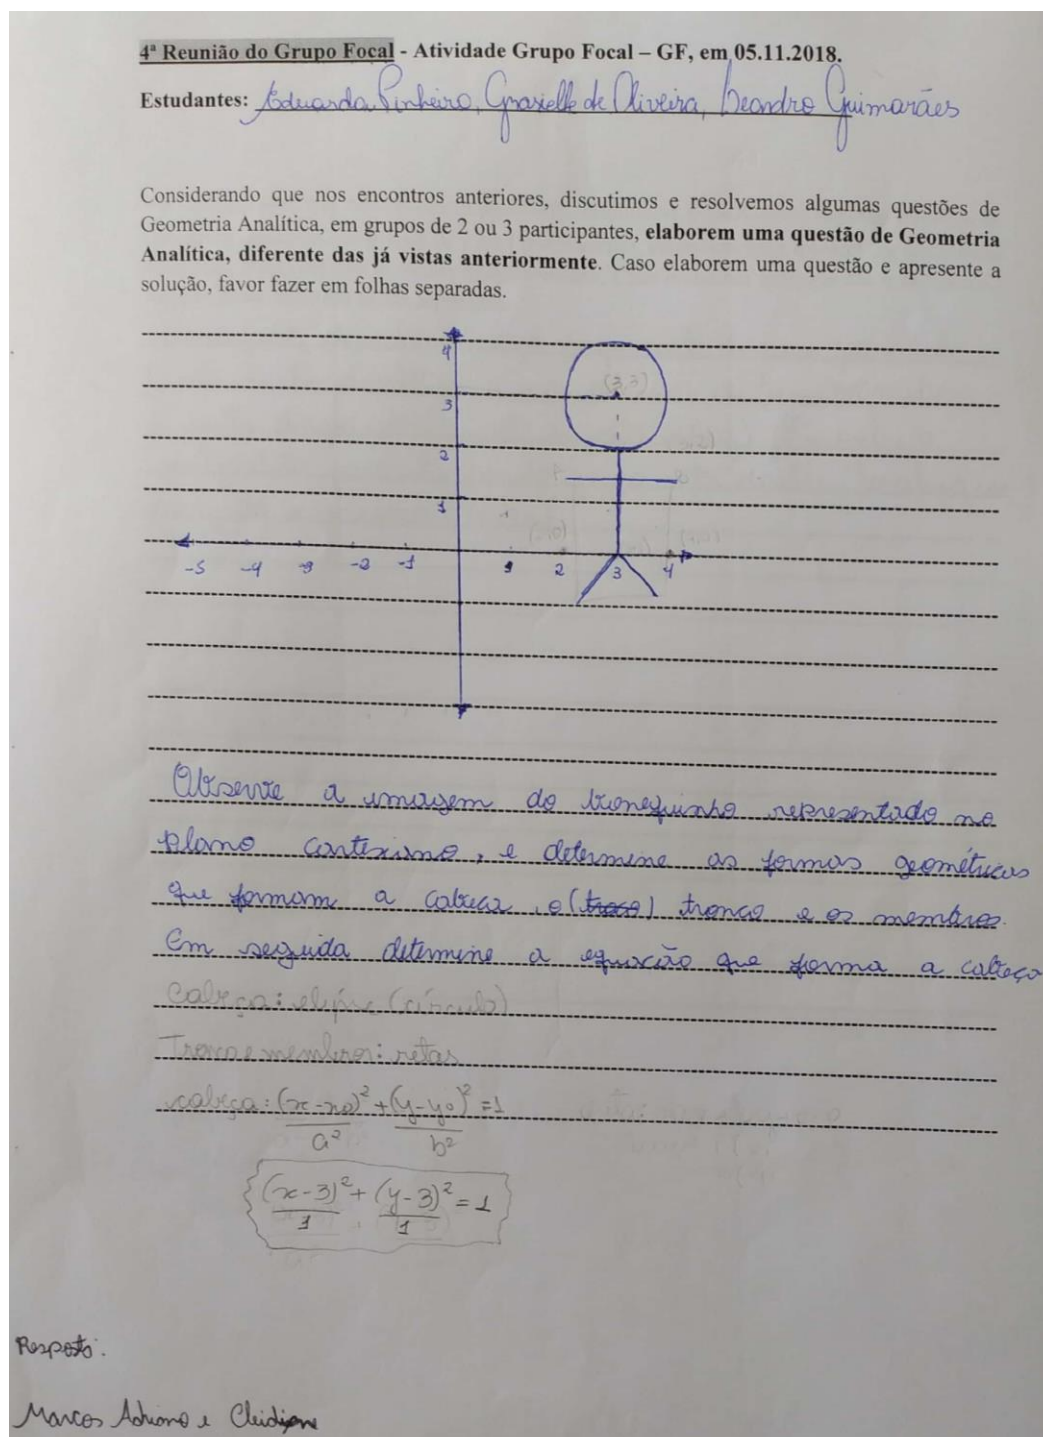 4ª Reunião do Grupo Focal - Atividade Grupo Focal – GF, em 05.11.2018.
Estudantes: Eduarda Pinheiro, Grazielle de Oliveira, Leandro Guimarães
Considerando que nos encontros anteriores, discutimos e resolvemos algumas questões de
Geometria Analítica, em grupos de 2 ou 3 participantes, elaborem uma questão de Geometria
Analítica, diferente das já vistas anteriormente. Caso elaborem uma questão e apresente a
solução, favor fazer em folhas separadas.
4
(3,3)
3
2
1
-5 -4 -3 -2 -1 1 2 3 4
Observe a imagem do bonequinho representado no
plano cartesiano, e determine as formas geométricas
que formam a cabeça, o (troco) tronco e os membros.
Em seguida determine a equação que forma a cabeça
Cabeça: elipse (círculo)
Tronco e membros: retas
cabeça: (x-x0)²/a² + (y-y0)²/b² = 1
(x-3)²/1 + (y-3)²/1 = 1
Resposta:
Marcos Adriano e